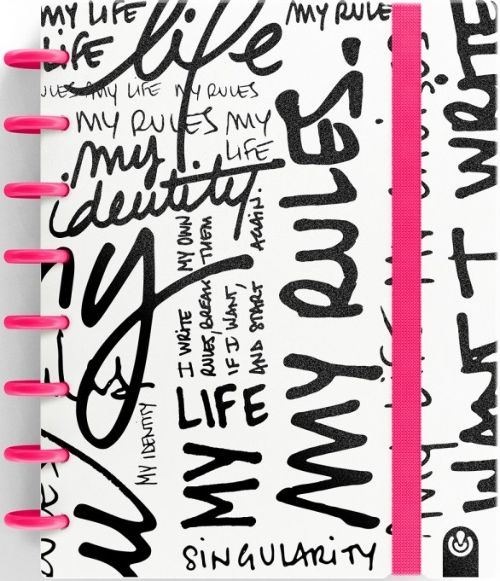 MY LIFE
LIFE
life
MY RULES
RULES MY LIFE MY RULES
MY RULES MY
LIFE
my
identity.
MY RULES.
I WRITE MY OWN
RULES, BREAK THEM
IF I WANT,
AND START AGAIN.
my
MY IDENTITY
MY LIFE
SINGULARITY
I WANT WRITE